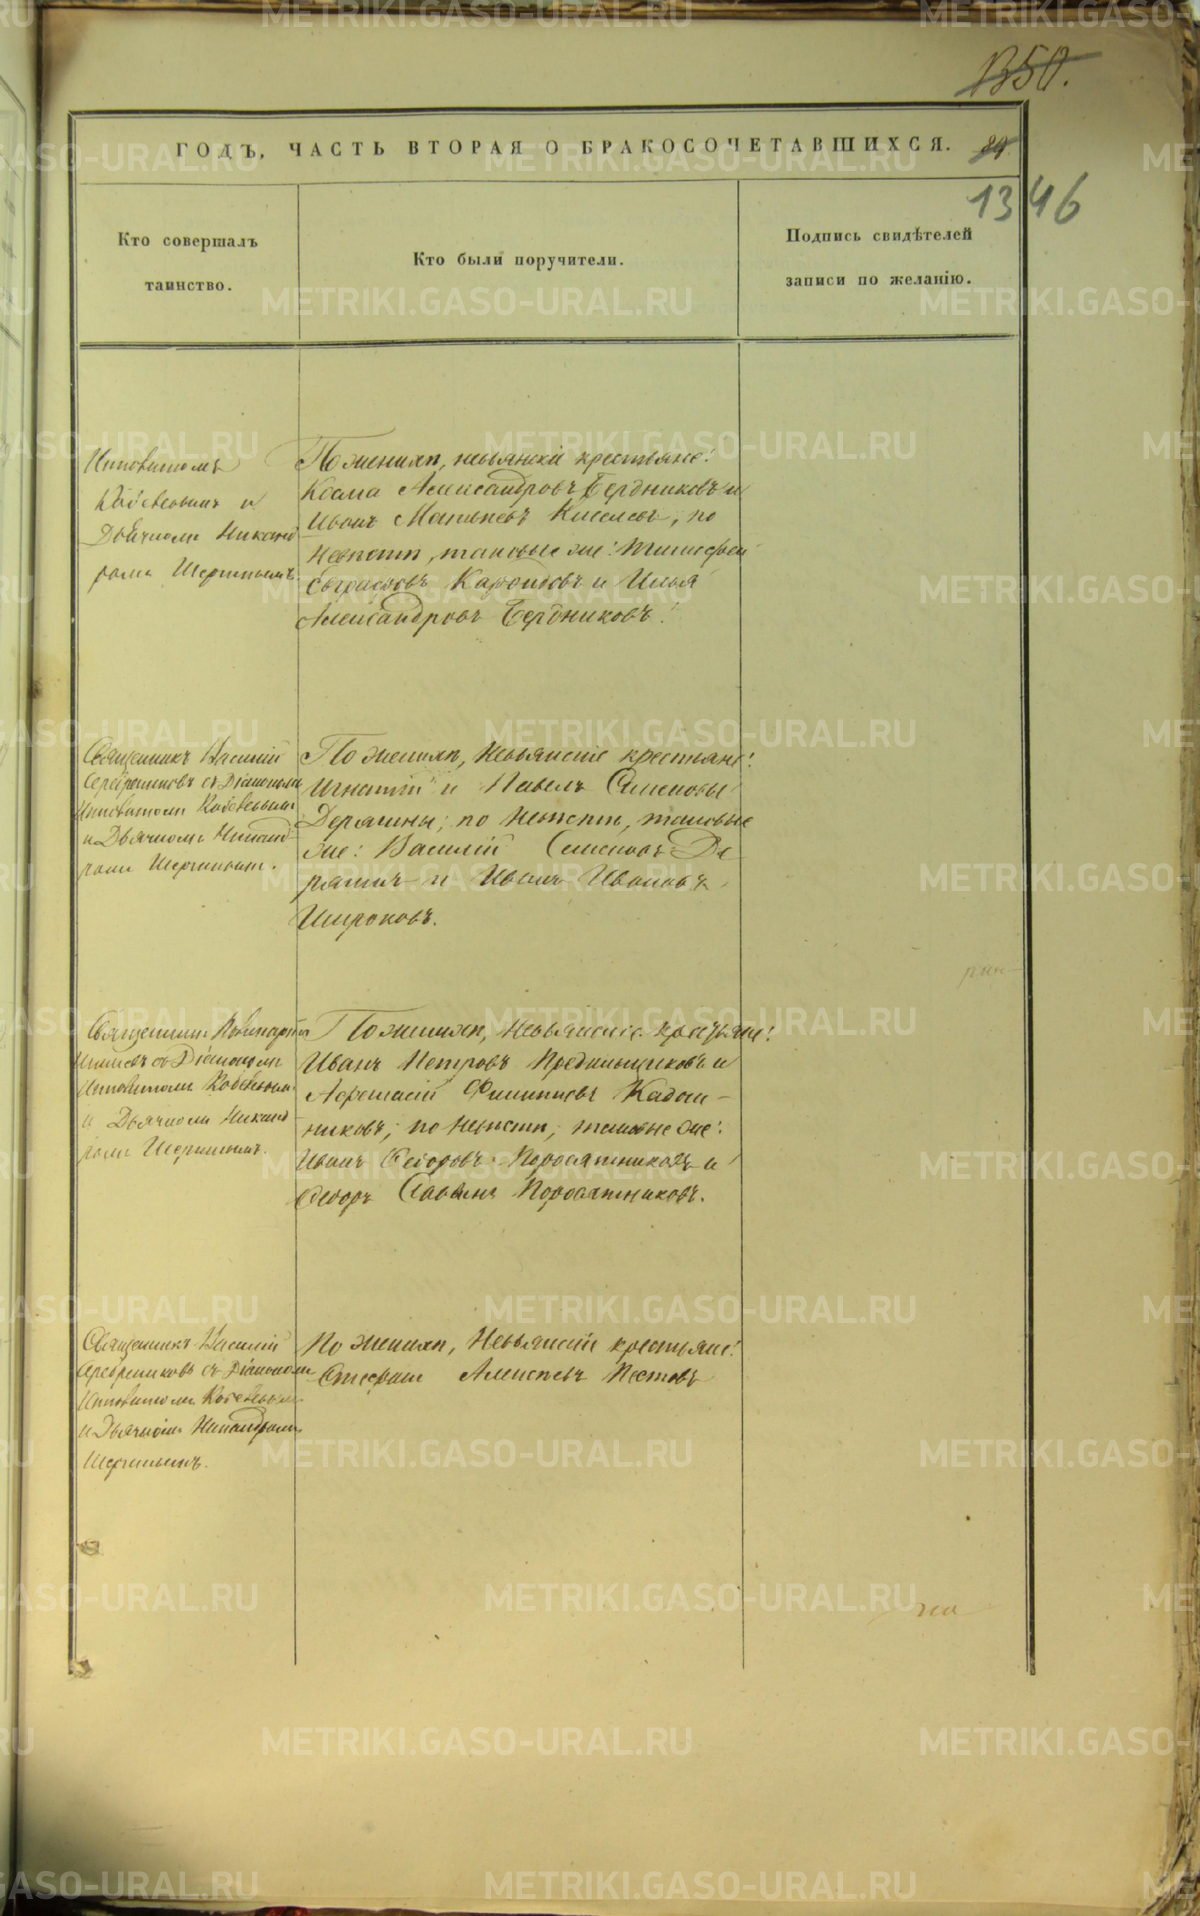 1350.
ГОДЪ, ЧАСТЬ ВТОРАЯ О БРАКОСОЧЕТАВШИХСЯ.
1346
Кто совершалъ
таинство.
Кто были поручители.
Подпись свидѣтелей
записи по желанію.
Ипповитомъ
и
Дьячкомъ Никанд
ромъ Шергинымъ
По женихѣ, невьянскіе крестьяне:
Косма Александровъ Бердниковъ и
Иванъ Матвѣевъ Киселевъ, по
Невѣстѣ, таковые же: Тимофей
Евграфовъ и Илья
Александровъ Бердниковъ.
Священникъ Василій
Серебренниковъ съ Діакономъ
Ипповитомъ
и Дьячкомъ Никанд
ромъ Шергинымъ.
По женихѣ, Невьянскіе крестьяне:
Игнатій и Павелъ Семеновы
Дерягины; по Невѣстѣ, таковые
же: Василій Семеновъ Де
рягинъ и Иванъ Ивановъ
Широковъ.
Священникъ
съ Діакономъ
Ипповитомъ
и Дьячкомъ Никанд
ромъ Шергинымъ.
По женихѣ, Невьянскіе крестьяне:
Иванъ Петровъ и
Афанасій Филипповъ Кадош-
никовъ; по Невѣстѣ, таковые же:
Иванъ Федоровъ Поросятниковъ и
Федоръ Савинъ Поросятниковъ.
Священникъ Василій
Серебренниковъ съ Діакономъ
Ипповитомъ
и Дьячкомъ Никандромъ
Шергинымъ.
По женихѣ, Невьянскіе крестьяне:
Стефанъ Алексѣевъ Пестовъ
METRIKI.GASO-URAL.RU